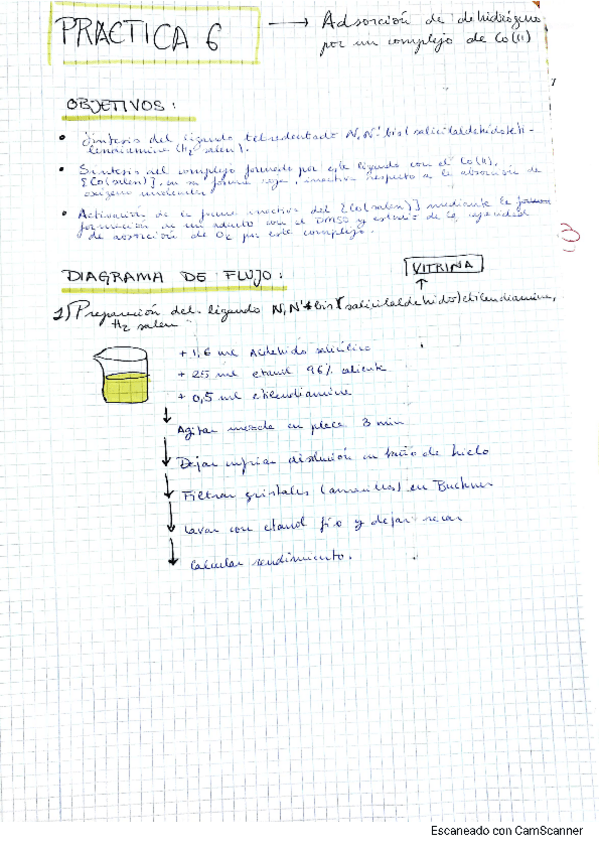 PRACTICA 6 → Adsorción de dehidrógeno
por un complejo de Co(II)
OBJETIVOS:
• Síntesis del ligando tetradentado N,N'-bis(salicilaldehido)eti-
lendiamina (H2 salen).
• Síntesis del complejo formado por este ligando con el Co(II),
[Co(salen)], en su forma roja, inactiva respecto a la absorción de
oxígeno molecular.
• Activación de la forma inactiva del [Co(salen)] mediante la
formación de un aducto con el DMSO y estudio de la capacidad
de adsorción de O2 por este complejo.
DIAGRAMA DE FLUJO:
VITRINA
1) Preparación del ligando N,N'-bis(salicilaldehido)etilendiamina,
H2 salen
+ 1,6 mL Aldehido salicílico
+ 25 mL etanol 96% caliente
+ 0,5 mL etilendiamina
Agitar mezcla en placa 3 min
Dejar enfriar disolución en baño de hielo
Filtrar cristales (amarillos) en Buchner
Lavar con etanol frío y dejar secar
Calcular rendimiento.
Escaneado con CamScanner